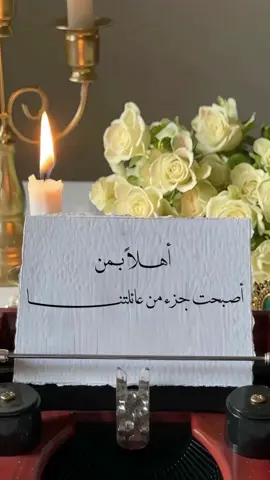 أهلاً بمن
أصبحت جزء من عائلتنا